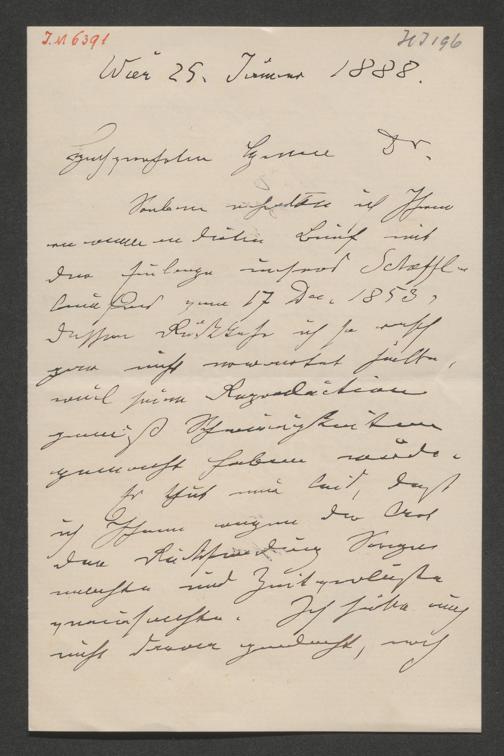 I.N 6391
HJ196
Wien 25. Jänner 1888.
Hochgeehrter Herr Dr.
Soeben erhalte ich Ihren
Brief mit
der Beilage unseres
vom 17 Dec. 1853,
dessen Rückkehr ich so rasch
gar nicht erwartet hätte,
weil seine Reproduction
gewiß Schwierigkeiten
gemacht haben würde.
Es thut mir leid, daß
ich Ihnen wegen der Art
der Rücksendung Sorgen
machte und Zeitverluste
verursachte. Ich habe auch
nicht daran gedacht, noch